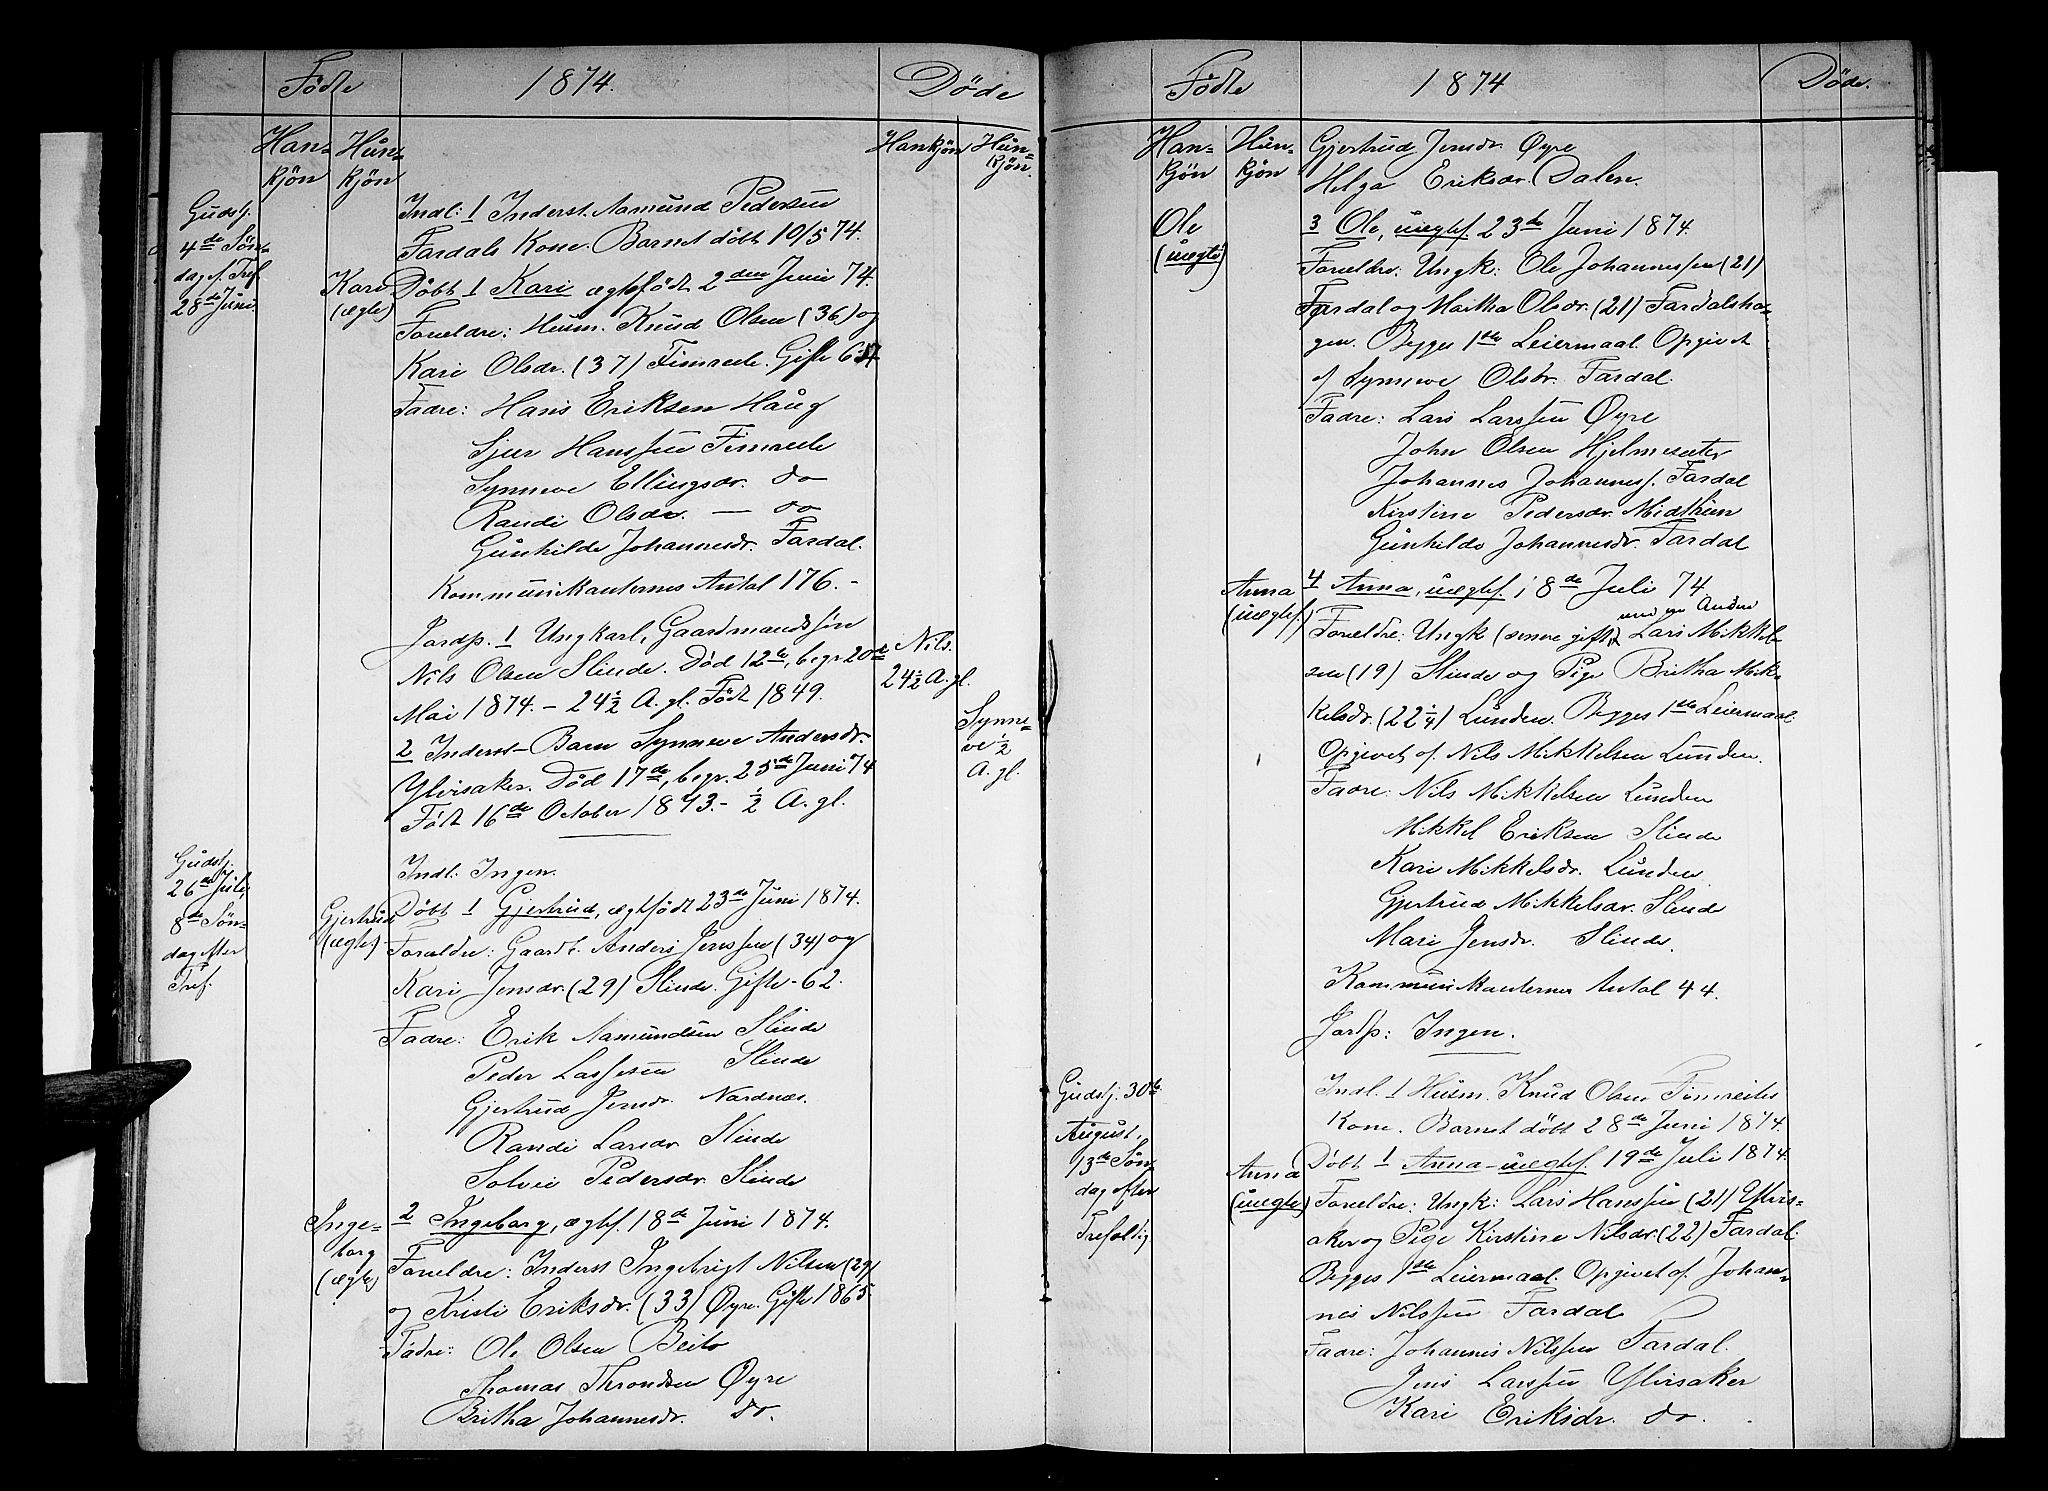 Födte 1874. Döde
Han-
kjön
Hün-
kjön
Hankjön
Hün-
kjön.
Gudstj.
4de Sön-
dag ef. Tref.
28de Juni.
Indl: 1 Inderst. Aamund Pedersen
Fardals Kone. Barnet döbt 10/5 74.
Kari
(ægte)
Döbt 1 Kari ægtefödt 2den Juni 74.
Forældre: Husm. Knud Olsen (36) og
Kari Olsdr. (37) Fimreite. Gifte
Fadre: Hans Eriksen Haug
Sjur Hanssen Fimreite
Synneve Ellingsdr. do
Randi Olsdr. — do
Gunhilde Johannesdr. Fardal.
Kommunikanternes Antal 176. -
Jordp. 1 Ungkarl, Gaardmandssön
Nils Olsen Slinde. Död 12te, begr. 20de
Mai 1874. - 24½ A. gl. Födt 1849.
Nils.
24½ A. gl.
2 Inderst-Barn Synneve Andersdr.
Ylvisaker. Död 17de, begr. 25de Juni 74
Födt 16de October 1873. - ½ A. gl.
Synne-
ve ½
A. gl.
Gudstj.
26de Juli,
8de Sön-
dag efter
Tref.
Indl: Ingen.
Gjertrud
(ægte)
Döbt 1 Gjertrud, ægtefödt 23de Juni 1874.
Forældre: Gaardb. Anders Jenssen (34) og
Kari Jensdr. (29) Slinde. Gifte - 62.
Fadre: Erik Aamundsen Slinde
Peder Lassesen Slinde
Gjertrud Jensdr. Nordnæs.
Randi Larsdr. Slinde
Solvei Pedersdr. Slinde
Inge-
borg
(ægte)
2 Ingeborg, ægtef. 18de Juni 1874.
Forældre: Inderst Ingebrigt Nilsen (29)
og Kristi Eriksdr. (33) Øyre. Gifte 1865.
Fadre: Ole Olsen Beito
Thomas Throndsen Øyre
Britha Johannesdr. do.
Födte 1874 Döde.
Han-
kjön
Hün-
kjön
Gjertrud Jensdr. Øyre
Helga Eriksdr. Dalen.
Ole
(uægte)
3 Ole, uægtef. 23de Juni 1874.
Forældre: Ungk: Ole Johannessen (21)
Fardal og Martha Olsdr. (21) Fardalsha-
gen. Begges 1ste Leiermaal. Opgivet
af Synneve Olsdr. Fardal.
Fadre: Lars Larssen Øyre
John Olsen Hjelmesæter
Johannes Johannesf. Fardal
Kirstine Pedersdr. Midthun
Gunhilde Johannesdr. Fardal
Anna
(uægtef.)
4 Anna, uægtef. 18de Juli 74.
med en Anden
Forældre: Ungk (senere gift) Lars Mikkel-
sen (19) Slinde og Pige Britha Mik-
kelsdr. (22¼) Lunden. Begges 1ste Leiermaal.
Opgivet af Nils Mikkelsen Lunden.
Fadre: Nils Mikkelsen Lunden
Mikkel Eriksen Slinde
Kari Mikkelsdr. Lunden
Gjertrud Mikkelsdr. Slinde
Mari Jensdr. Slinde.
Kommunikanternes Antal 44.
Jordp: Ingen.
Gudstj. 30te
August,
13de Sön-
dag efter
Trefoldig.
Indl. 1 Husm. Knud Olsen Fimreites
Kone. Barnet döbt 28de Juni 1874.
Anna
(uægte)
Döbt 1 Anna - uægtef. 19de Juli 1874.
Forældre: Ungk: Lars Hanssen (21) Ylvis-
aker og Pige Kirstine Nilsdr. (22) Fardal.
Begges 1ste Leiermaal. Opgivet af Johan-
nes Nilssen Fardal
Fadre: Johannes Nilssen Fardal.
Jens Larssen Ylvisaker
Kari Eriksdr. do.